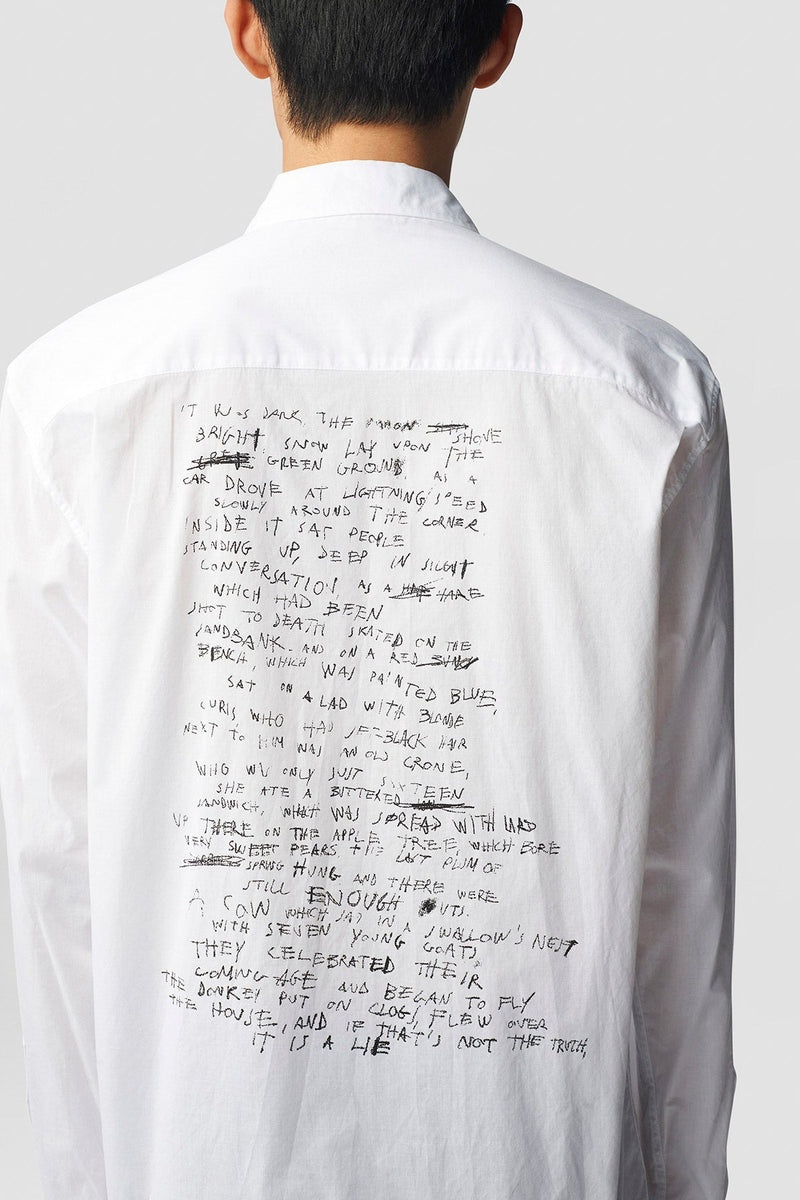 IT WAS DARK, THE MOON SHOVE
BRIGHT, SNOW LAY UPON THE
GREEN GROUND, AS A
CAR DROVE AT LIGHTNING SPEED
SLOWLY AROUND THE CORNER.
INSIDE IT SAT PEOPLE
STANDING UP, DEEP IN SILENT
CONVERSATION, AS A HARE
WHICH HAD BEEN
SHOT TO DEATH SKATED ON THE
SANDBANK. AND ON A RED
BENCH, WHICH WAS PAINTED BLUE,
SAT ON A LAD WITH BLONDE
CURLS WHO HAD JET-BLACK HAIR
NEXT TO HIM WAS AN OLD CRONE,
WHO WAS ONLY JUST SIXTEEN
SHE ATE A BUTTERED
SANDWICH, WHICH WAS SPREAD WITH LARD
UP THERE ON THE APPLE TREE, WHICH BORE
VERY SWEET PEARS, THE LAST PLUM OF
SPRING HUNG AND THERE WERE
STILL ENOUGH NUTS.
A COW WHICH SAT IN A SWALLOW'S NEST
WITH SEVEN YOUNG GOATS
THEY CELEBRATED THEIR
COMING AGE AND BEGAN TO FLY
THE DONKEY PUT ON CLOGS, FLEW OVER
THE HOUSE, AND IF THAT'S NOT THE TRUTH,
IT IS A LIE